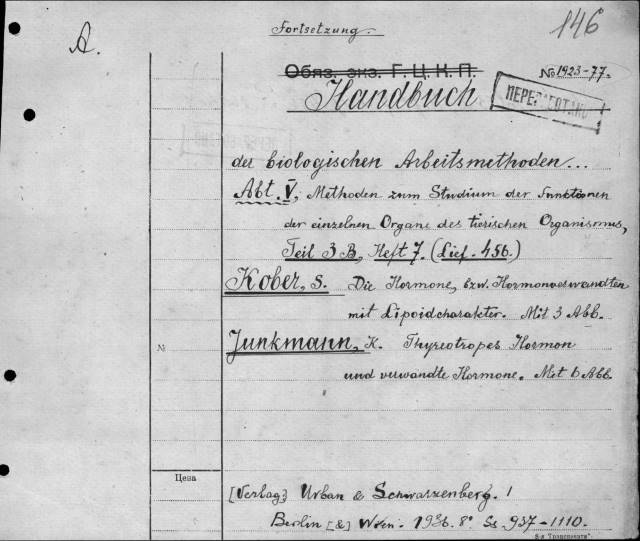 Fortsetzung.
146
A.
Обяз. экз. Г. Ц. К. П.
№ 1923-77.
Handbuch
der biologischen Arbeitsmethoden...
Abt. V, Methoden zum Studium der Funktionen
der einzelnen Organe des tierischen Organismus,
Teil 3 B, Heft 7. (Lief. 456.)
Kober, S. Die Hormone, bzw. Hormonverwandten
mit Lipoidcharakter. Mit 3 Abb.
Junkmann, K. Thyreotropes Hormon
und verwandte Hormone. Mit 6 Abb.
№
Цена
[Verlag] Urban & Schwarzenberg.
Berlin [&] Wien. 1936. 8° Ss. 937-1110.